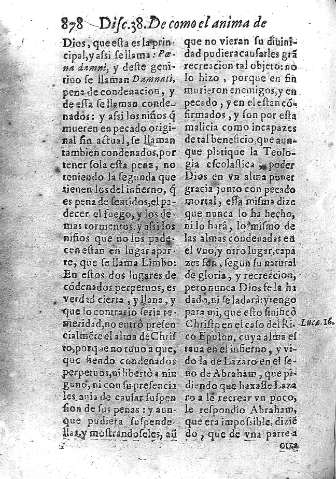 878 Disc.38. De como el anima de
Dios, que esta es la prin-
cipal, y assi se llama: Pæ-
na damni, y deste geni-
tiuo se llaman Damnati,
pena de condenacion, y
de esta se llaman conde-
nados: y assi los niños q̃
mueren en pecado origi-
nal sin actual, se llaman
tambien condenados, por
tener sola esta pena, no
teniendo la segunda que
tienen los del infierno, q̃
es pena de sentidos, el pa-
decer el fuego, y los de-
mas tormentos, y assi los
niños que no los pade-
cen estan en lugar apar-
te, que se llama Limbo:
En estos dos lugares de
cõdenados perpetuos, es
verdad cierta, y llana, y
que lo contrario seria te-
meridad, no entrò presen-
cialmẽte el alma de Chris
to, porque no tuuo a que,
que siendo condenados
perpetuos, ni libertò a nin-
guno, ni con su presencia
les auia de causar suspen-
sion de sus penas: y aun-
que pudiera suspende-
llas, y mostrandoseles, aũ
que no vieran su diuini-
dad pudiera causarles grã
recreacion tal objeto: no
lo hizo, porque en fin
murieron enemigos, y en
pecado, y en el estan cõ-
firmados, y son por esta
malicia como incapaces
de tal beneficio, que aun-
que platique la Teolo-
gia escolastica poder
Dios en vn alma poner
gracia junto con pecado
mortal, esta misma dize
que nunca lo ha hecho,
ni lo harà, lo mismo de
las almas condenadas en
el vuo, y otro lugar, capa
zes son, segun su natural
de gloria, y recreacion,
pero nunca Dios se la ha
dado, ni se la darà: y tengo
para mi, que esto sinificò
Christo en el caso del Ri
co Epulon, cuya alma es
taua en el infierno, y vi-
do la de Lazaro en el se-
no de Abraham, que pi-
diendo que baxasse Laza
ro a le recrear vn poco,
le respondio Abraham,
que era impossible, dizie
do, que de vna parte a
otra
Luca. 16.